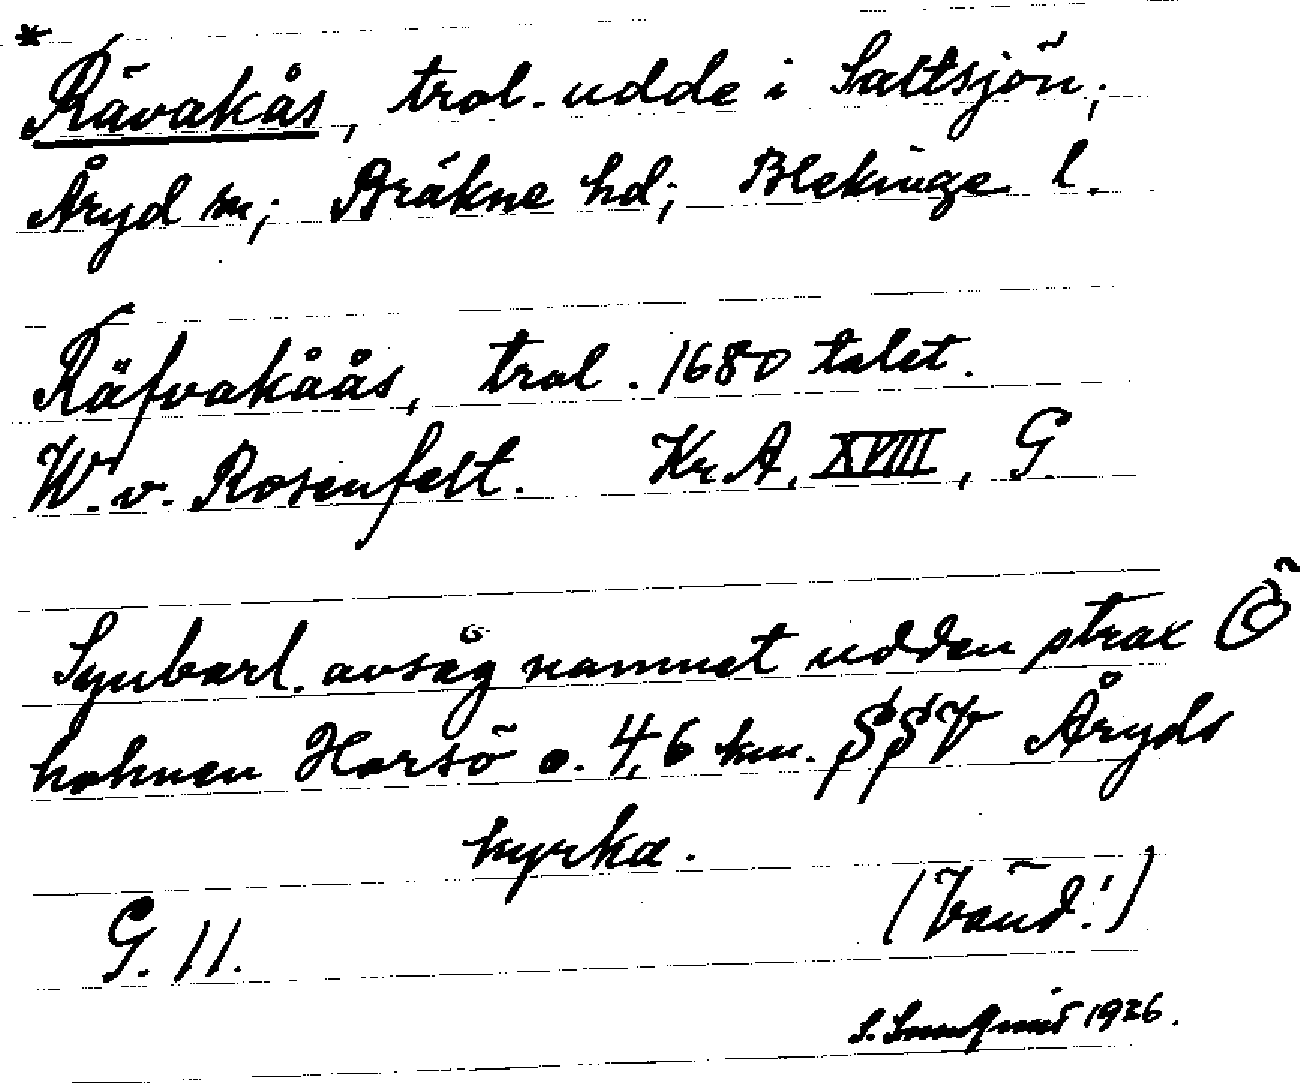 *
Rävakås, trol. udde i Saltsjön;
Åryd sn; Bräkne hd; Blekinge l.
Räfvakåås, trol. 1680 talet.
W. v. Rosenfelt. Kr. A, XVIII, G
Synbarl. avsåg namnet udden strax Ö
holmen Horsö o. 4,6 km. SSV Åryds
kyrka.
G. 11.
(Vänd!)
S. 1926.